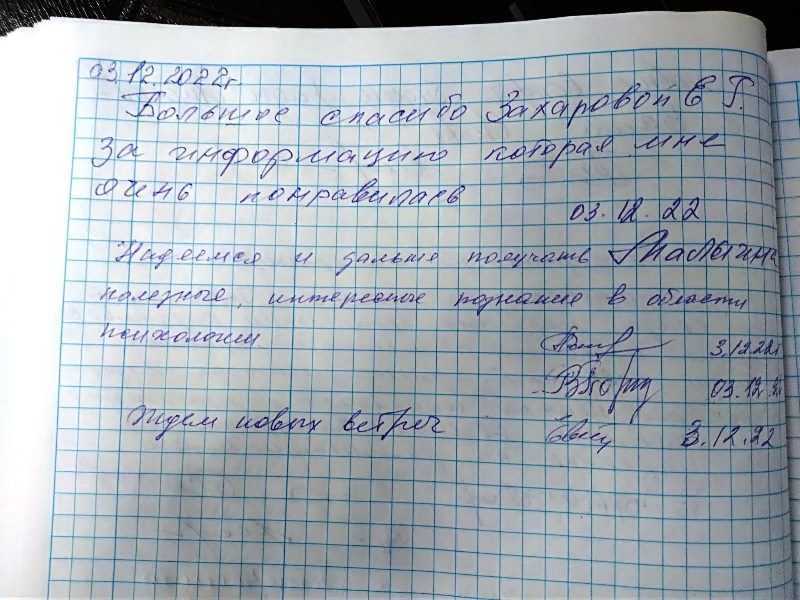 03.12.2022г
Большое спасибо Захаровой Е Г.
За информацию которая мне
очень понравилась
03.12.22
Надеемся и дальше получать
полезные, интересные познание в области
психологии
3.12.22г
03.12.22
Ждем новых встреч
3.12.22